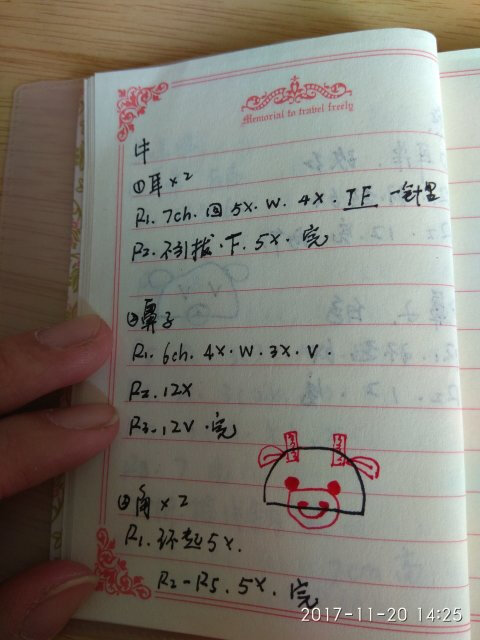 Memorial to travel freely
牛
①耳×2
R1. 7ch. 回 5X. W. 4X. TF 一针里
R2. 不引拔. T. 5X. 完
②鼻子
R1. 6ch. 4X. W. 3X. V.
R2. 12X
R3. 12V. 完
③角×2
R1. 环起5X.
R2-R5. 5X. 完
2017-11-20 14:25